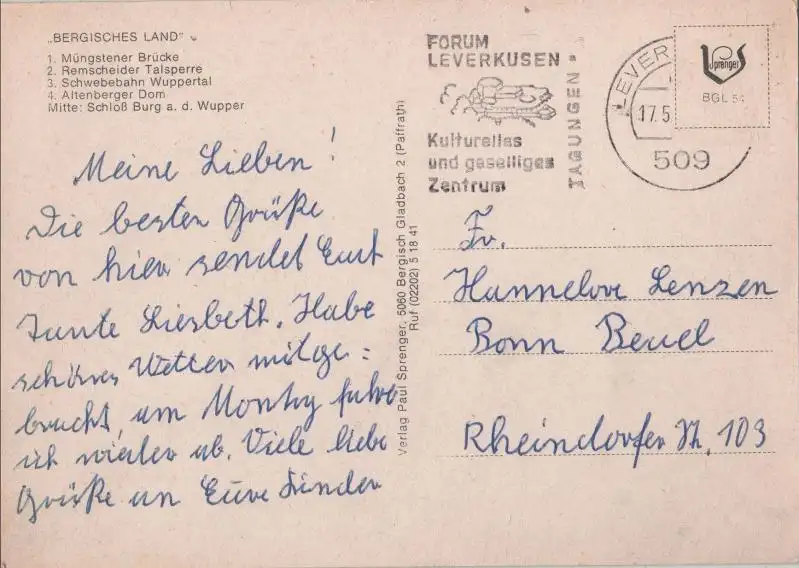 „BERGISCHES LAND"
1. Müngstener Brücke
2. Remscheider Talsperre
3. Schwebebahn Wuppertal
4. Altenberger Dom
Mitte: Schloß Burg a. d. Wupper
Meine Lieben!
Die besten Grüße
von hier sendet Euch
Tante Liesbeth. Habe
schönes Wetter mitge=
bracht, am Montag fahre
ich wieder ab. Viele liebe
Grüße an Eure Kinder
Verlag Paul Sprenger, 5060 Bergisch Gladbach 2 (Paffrath)
Ruf (02202) 5 18 41
FORUM
LEVERKUSEN
Kulturelles
und geselliges
Zentrum
TAGUNGEN
LEVER
17.5
509
Sprenger
BGL 54
Fr.
Hannelore Lenzen
Bonn Beuel
Rheindorfer Str. 103